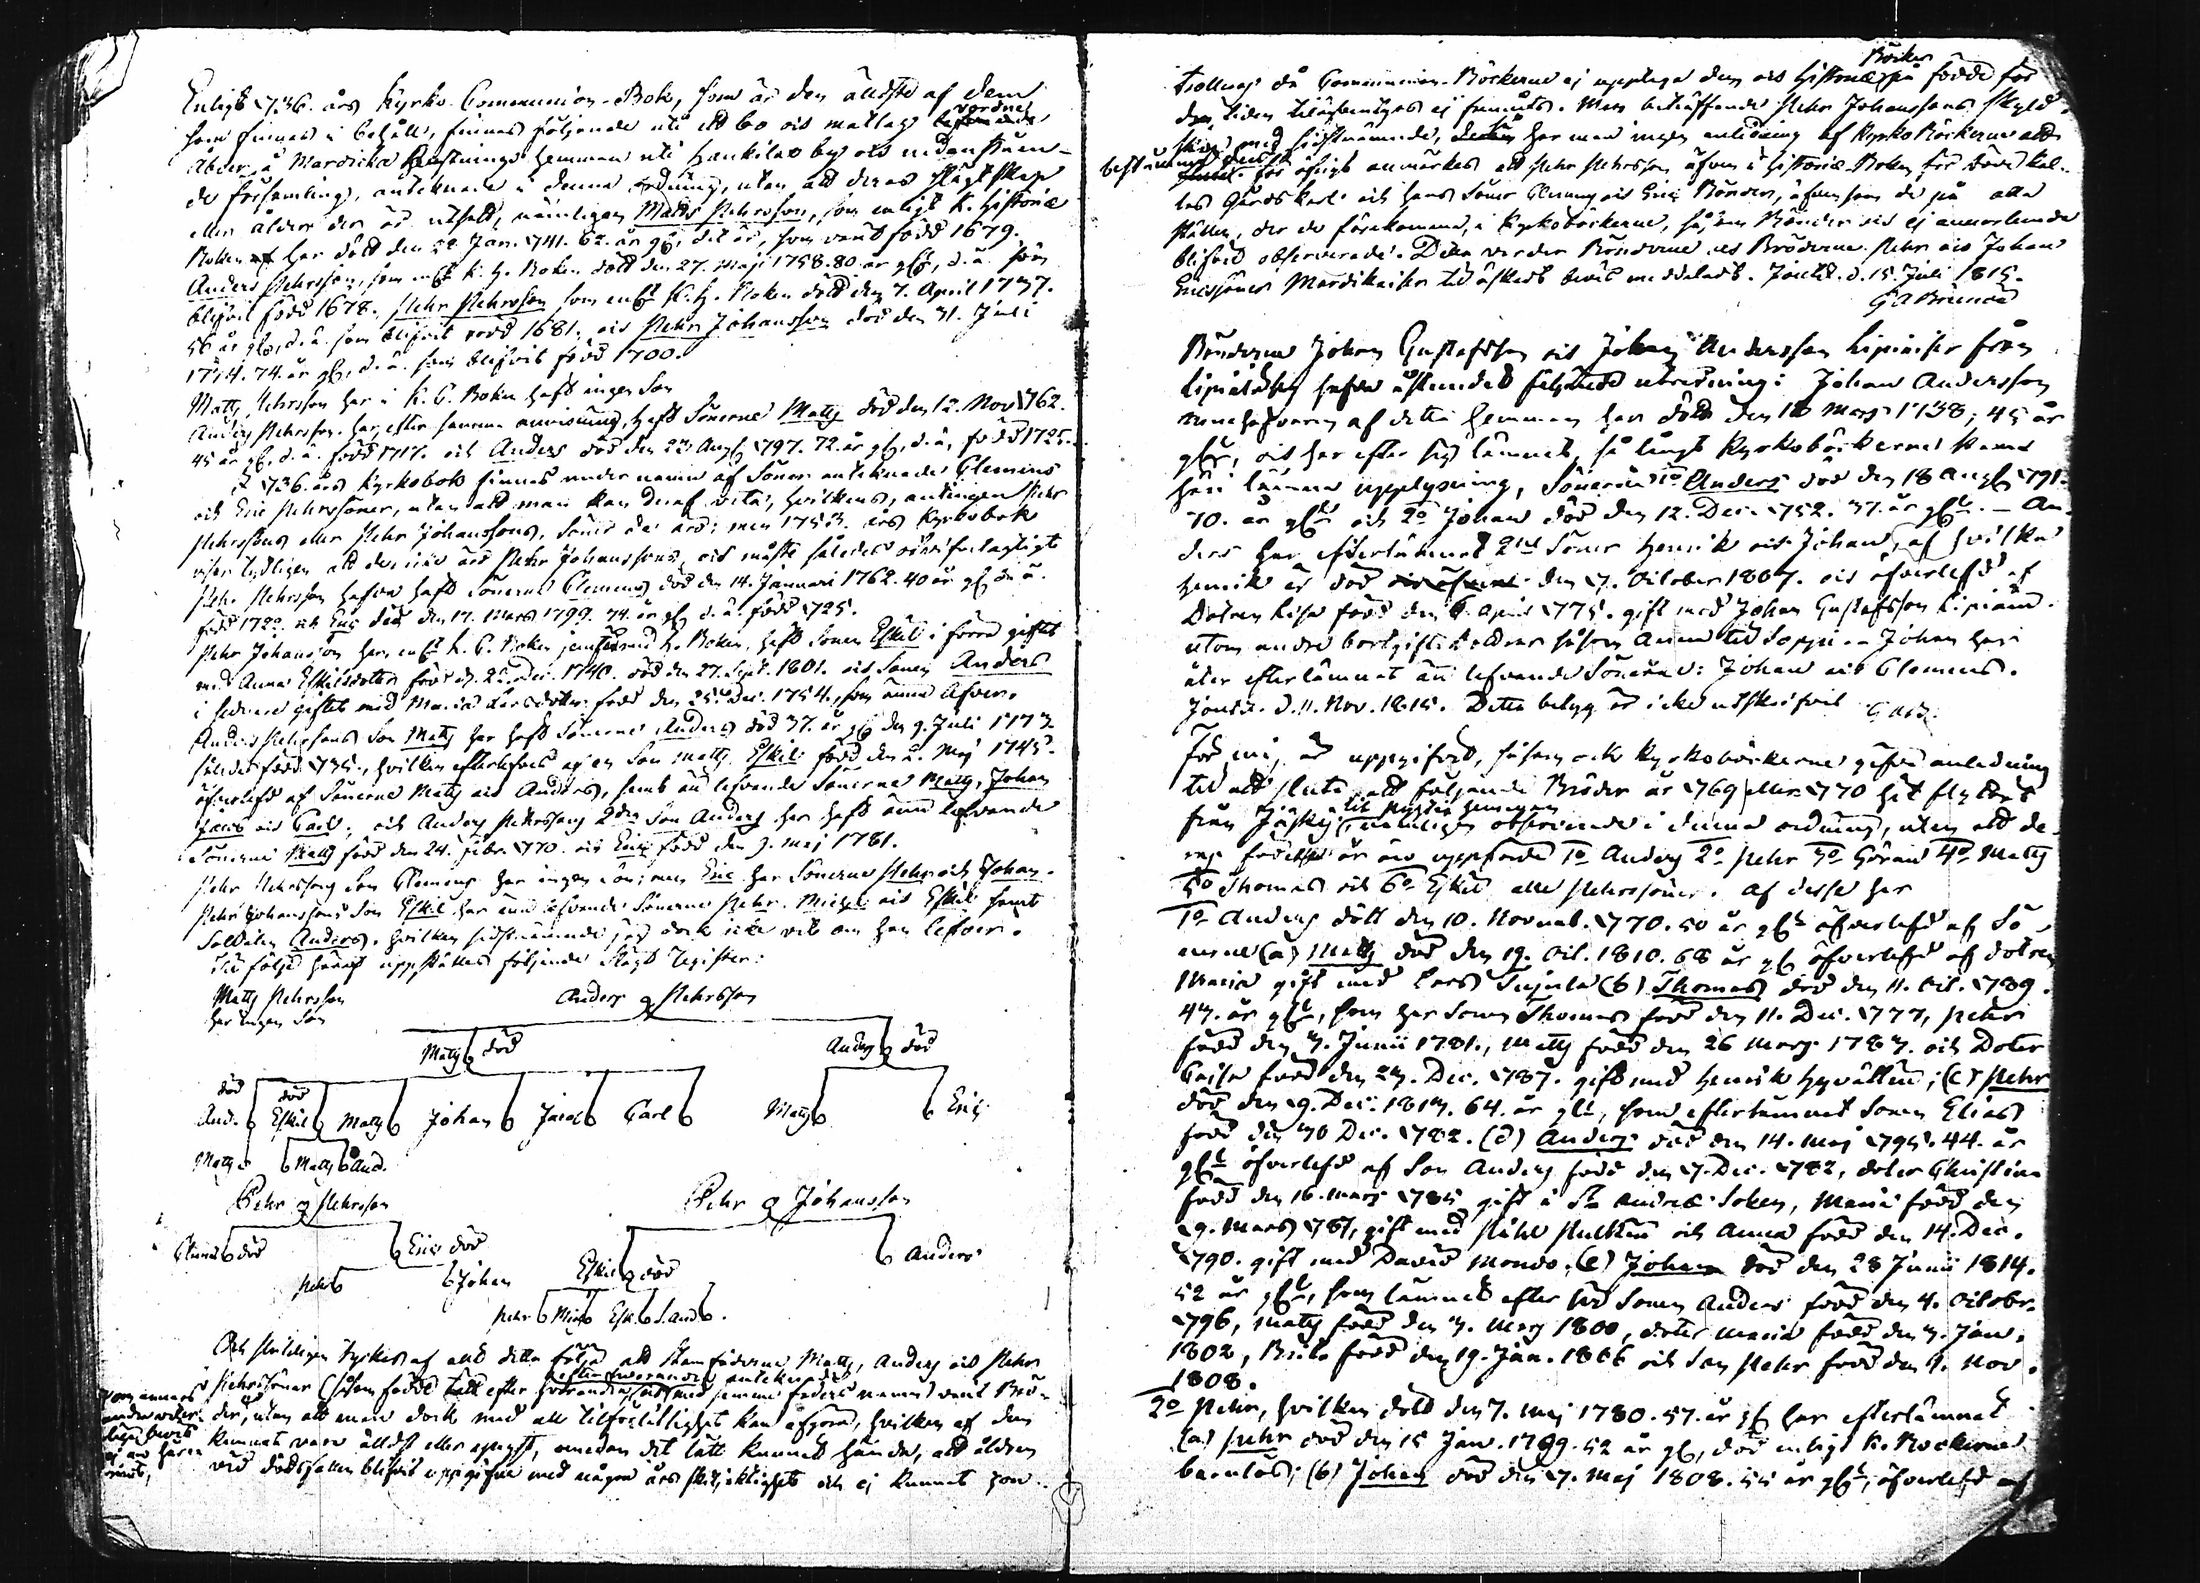 Enligt 1736. års Kyrko Communion-Bok, som är den äldste af dem
som finnas i behåll, finnas följande uti ett bo och matlag
Åboer å Mardicka hemman uti Hankila by och nedanstående
de församling, antecknade i denna ordning, utan att deras slägtskap
eller ålder der är utsatt, nämligen Matts Pehrsson, som enligt K. Historie
Boken har dött den 22 Jan. 1741. 62. år gl, det är, som varit född 1679.
Anders Pehrsson, som enl. K. H. Boken dött den 27. Maji 1758. 80 år gl, d. ä. som
blifvit född 1678. Pehr Pehrsson som enl. K. H. Boken död den 7. April 1737.
56 år gl, d. ä. som blifvit född 1681. och Pehr Johansson död den 31. Juli
1774. 74. år gl, d. ä. som blifvit född 1700.
Matts Pehrsson har i K. C. Boken haft ingen Son
Anders Pehrsson har, efter samma anvisning, haft Sönerne Matts död den 12. Nov 1762.
45 år gl, d. ä. född 1717. och Anders död den 23 Aug 1797. 72. år gl, d. ä. född 1725.
I 1736. års Kyrkobok finnas under namn af Söner antecknade Clemens
och Eric Pehrssöner, utan att man kan deraf veta, hvilkens, antingen Pehr
Pehrssons eller Pehr Johanssons, Söner de äro; men 1753. års Kyrkobok
viser tydligen att de icke äro Pehr Johanssons, och måste således
Pehr Pehrsson hafva haft Sönerne Clemens död den 14. Januari 1762. 40 år gl d. ä.
född 1722. och Eric död den 17. Mars 1799. 74. år gl d. ä. född 1725.
Pehr Johansson har, enl. K. C. Boken jemförd med H. Boken, haft Sonen Eskil i förra giftet
med Anna Eskilsdotter född d. 22. Dec. 1740. död den 27. Sept. 1801. och Sonen Anders
i sednare giftet med Maria Larsdotter född den 25. Dec. 1754., som ännu lefver.
Anders Pehrssons Son Matts har haft Sönerne Anders död 37. år gl den 9. Juli 1773.
således född 1735., hvilken efterlefves af en Son Matts, Eskil född den 2. Maj 1745.
öfverlefd af Sönerne Matts och Anders, samt än lefvande Sönerne Matts, Johan
Jacob och Carl; och Anders Pehrssons 2dre Son Anders har haft ännu lefvande
Sönerne Matts född den 24. Febr. 1770. och Eric född den 9. Maj 1781.
Pehr Pehrssons Son Clemens har ingen Son; men Eric har Sönerne Pehr och Johan.
Pehr Johanssons Son Eskil har ännu lefvande Sönerne Pehr. Michel och Eskil samt
Soldaten Anders, hvilken sistnämnde jag dock icke vet om han lefver.
Till följd häraf uppställes följande Slägt Register:
Matts Pehrsson
har ingen Son
Anders Pehrsson
Matts död
Anders död
död
And.
död
Eskil
Matts
Johan
Jacob
Carl
Matts
Eric
Matts
Matts And.
Pehr Pehrsson
Pehr Johansson
Clemens död
Eric död
Eskil död
Anders
Pehr
Johan
Pehr Mich Esk. S. And.
Och skulle tyckas af allt detta följa att Stamfäderne Matts, Anders och Pehr
Pehrssöner (såsom födde tätt efter hvarandra och med samma faders namn) varit Brö-
der, utan att man dock med all tilförlitlighet kan afgöra, hvilken af dem
kunnat vara älldst eller yngst, emedan det lätt kunnat hända, att ålderen
vid dödsfallen blifvit uppgifne med någon års skiljaktighet och ej kunnat con-
Böcker
trolleras då Communion-Böckerne ej upptaga dem och Historie på födde för
den tiden ej funnits. Men beträffande Pehr Johanssons Skyld-
skap med sistnämnde, har man ingen anledning af KyrkoBöckerne att
bestämma
för öfrigt anmärkes att Pehr Pehrsson äfven i Historie-Boken för döde kal-
las Gårdskarl och hans Söner Clemens och Eric Bönder, äfvensom de på alla
ställen, der de förekomma, i Kyrkoböckerne, såsom Bönder och ej annorlunda
blifvit observerade. Detta varder Bönderne och Bröderne Pehr och Johan
Ericssöner Mardikainen till äskadt bevis meddeladt. Joutz. d. 15. Juli 1815.
G A Brunou
Bönderne Johan Gustafsson och Johan Andersson Lipiäinen från
hafva äskandet följande utredning: Johan Andersson
innehafvaren af detta hemman har dött den 18 Mars 1738, 45 år
gl, och har efter sig lämnat, så långt Kyrkoböckerne kunna
häri lämna upplysning, Sönerne 1o Anders död den 18 Aug 1791.
70. år gl och 2o Johan död den 12. Dec. 1752. 37. år gl. – An-
ders har efterlämnat 2ne Söner Henrik och Johan, af hvilka
Henrik är död den 7. October 1807. och öfverlefd af
Dotren Lisa född den 6. April 1775. gift med Johan Gustafsson Lipiäin.
utom andre bortgifte döttrar såsom Anna till Soppi. – Johan har
åter efterlämnat än lefvande Sönerne: Johan och Clemens.
Joutz. d. 11. Nov. 1815. Detta betyg är icke utskrifvit G A B.
För mig är uppgifvet, såsom ock Kyrkoböckerne gifva anledning
till att sluta, att följande Bröder år 1769 eller 1770 hit flyttat
från Jäski, nämligen observerade i denna ordning, utan att de-
ras födelse år äro uppförde 1o Anders 2o Pehr 3o Göran 4o Matts
5o Thomas och 6o Eskil alle Pehrssöner. Af desse har
1o Anders dött den 10. Novemb. 1770. 50 år gl öfverlefd af Sö-
nerne (a) Matts död den 19. Oct. 1810. 68 år gl öfverlefd af dotren
Maria gift med Lars Sujula (b) Thomas död den 11. Oct. 1789.
43. år gl, som har Sonen Thomas född den 11. Dec. 1777, Pehr
född den 3. Junii 1781., Matts född den 26 Mars 1783. och Doter
Caisa född den 23. Dec. 1787. gift med Henrik Hyvättin; (c) Pehr
död den 9. Dec. 1813. 64. år gl, som efterlämnat Sonen Elias
född den 30 Dec. 1782. (d) Anders död den 14. Maj 1795. 44. år
gl öfverlefd af Son Anders född den 7. Dec. 1782, doter Christina
född den 16. Mars 1785 gift i St Andreæ Soken, Maria född den
9. Mars 1787, gift med Påhl Pulkkin och Anna född den 14. Dec.
1790. gift med David Monvo. (e) Johan död den 28 Junii 1814.
52 år gl, som lämnat efter sig Sonen Anders född den 4. Octobr.
1796, Matts född den 3. Mars 1800, doter Maria född den 3. Jan.
1802, Brita född den 19. Jan. 1806 och Son Pehr född den 9. Nov.
1808.
2o Pehr, hvilken död den 7. Maj 1780. 57. år gl har efterlämnat
(a) Pehr död den 15 Jan. 1799. 52 år gl, död enligt K. Böckerne
barnlös; (b) Johan död den 7. Maj 1808. 55 år gl, öfverlefd af